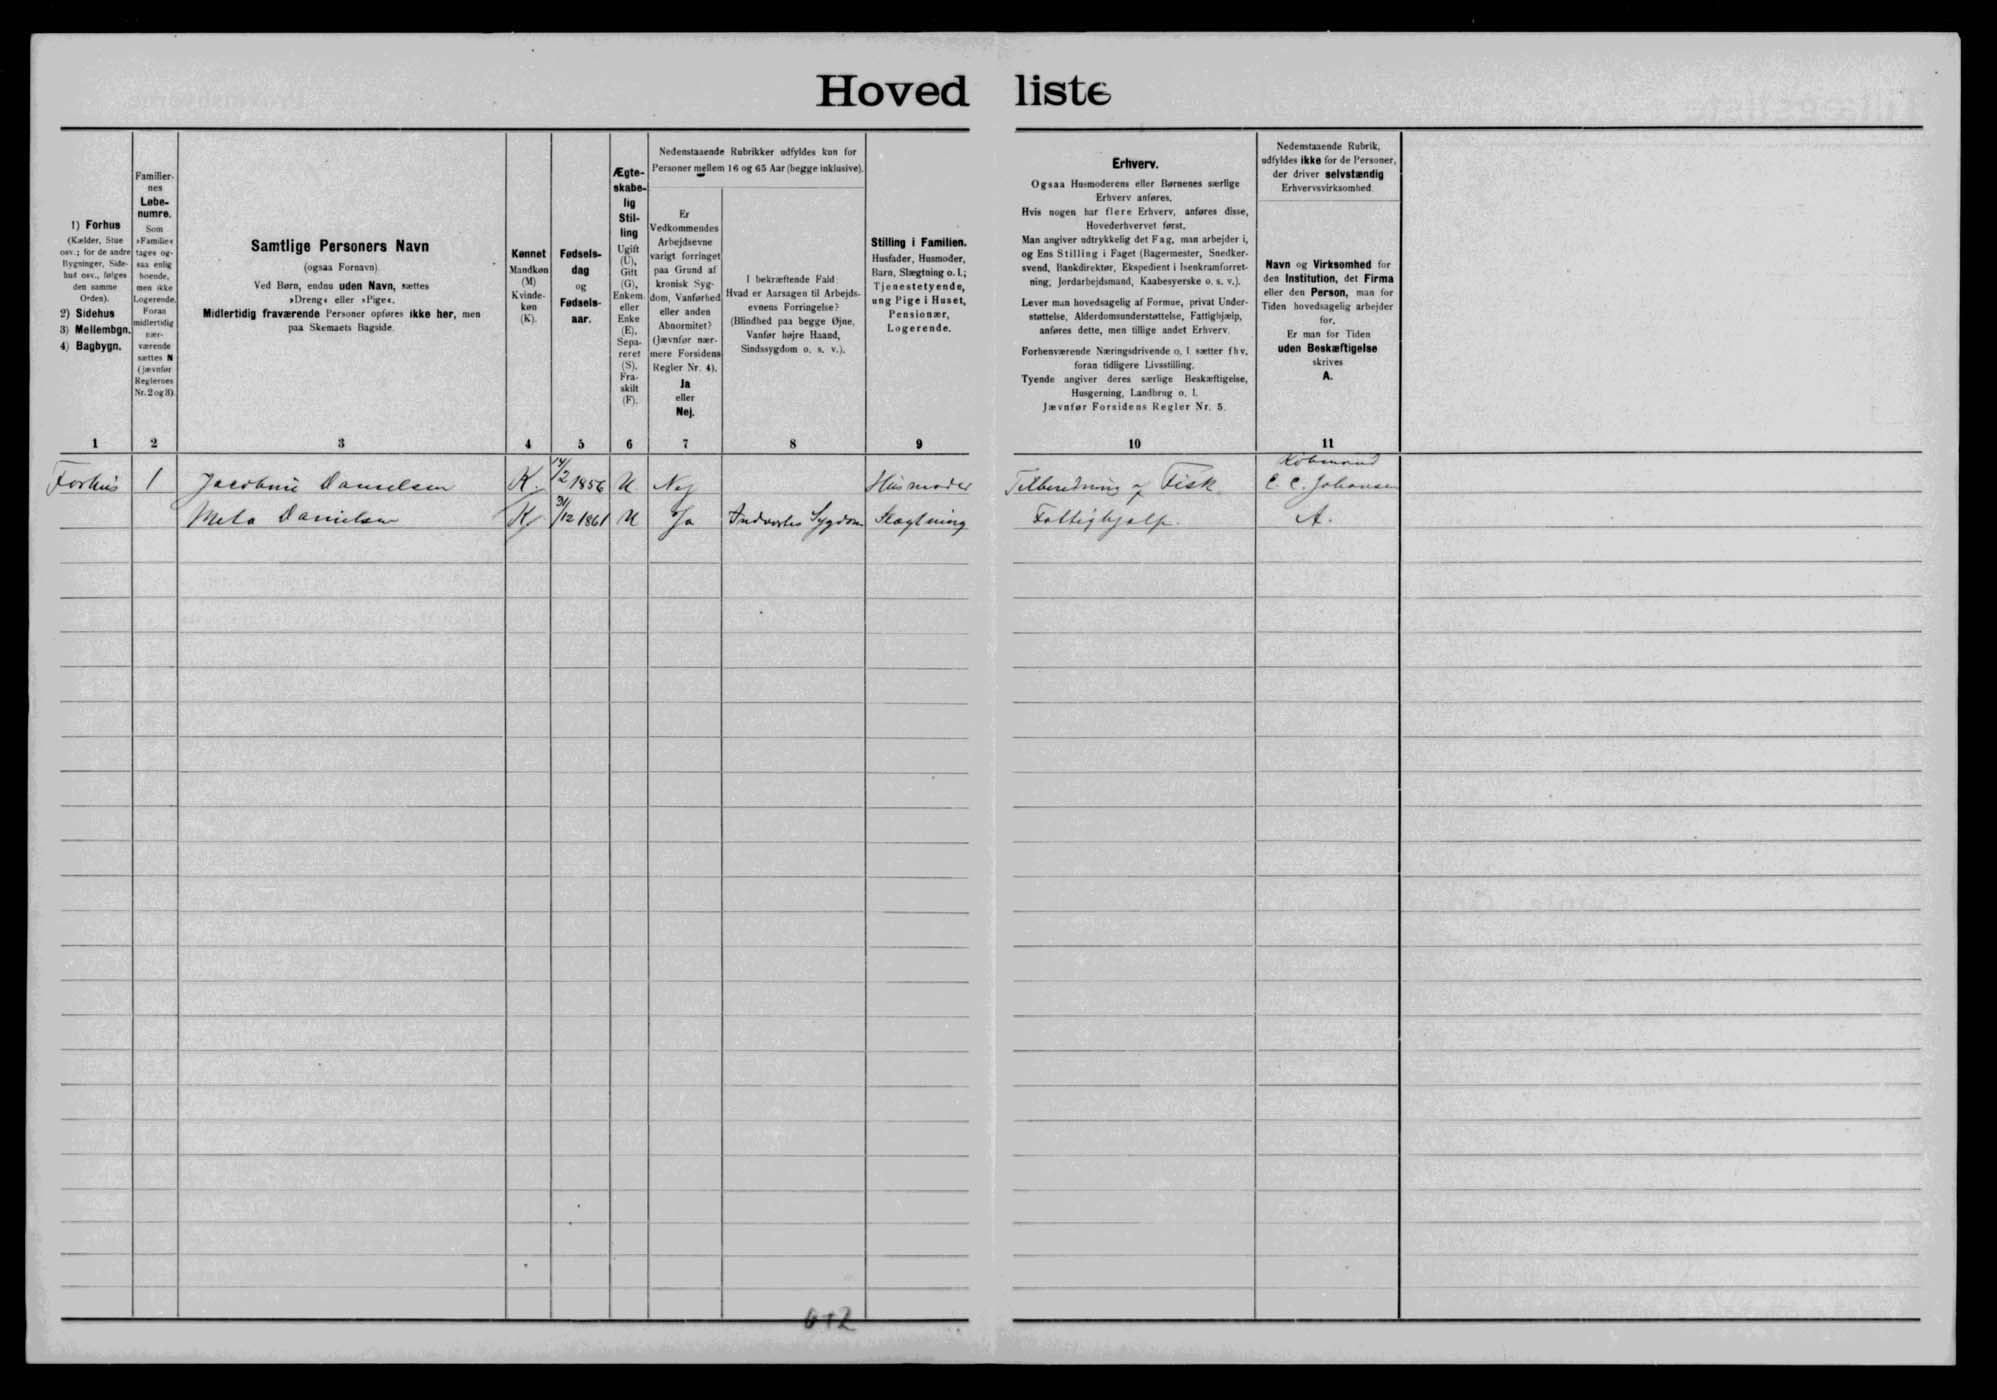 Hovedliste
1) Forhus
(Kælder, Stue
osv.; for de andre
Bygninger, Side-
hus osv., følges
den samme
Orden).
2) Sidehus
3) Mellembgn.
4) Bagbygn.
Familier-
nes
Løbe-
numre.
Som
»Familie«
tages og-
saa enlig
boende,
men ikke
Logerende.
Foran
midlertidig
nær-
værende
sættes N
(jævnfør
Reglernes
Nr. 2 og 3).
Samtlige Personers Navn
(ogsaa Fornavn).
Ved Børn, endnu uden Navn, sættes
»Dreng« eller »Pige«.
Midlertidig fraværende Personer opføres ikke her, men
paa Skemaets Bagside.
Kønnet
Mandkøn
(M)
Kvinde-
køn
(K).
Fødsels-
dag
og
Fødsels-
aar.
Ægte-
skabe-
lig
Stil-
ling
Ugift
(U),
Gift
(G),
Enkem.
eller
Enke
(E),
Sepa-
reret
(S),
Fra-
skilt
(F).
Nedenstaaende Rubrikker udfyldes kun for
Personer mellem 16 og 65 Aar (begge inklusive).
Er
Vedkommendes
Arbejdsevne
varigt forringet
paa Grund af
kronisk Syg-
dom, Vanførhed
eller anden
Abnormitet?
(Jævnfør nær-
mere Forsidens
Regler Nr. 4).
Ja
eller
Nej.
I bekræftende Fald:
Hvad er Aarsagen til Arbejds-
evnens Forringelse?
(Blindhed paa begge Øjne,
Vanfør højre Haand,
Sindssygdom o. s. v.).
Stilling i Familien.
Husfader, Husmoder,
Barn, Slægtning o. l.;
Tjenestetyende,
ung Pige i Huset,
Pensionær,
Logerende.
Erhverv.
Ogsaa Husmoderens eller Børnenes særlige
Erhverv anføres.
Hvis nogen har flere Erhverv, anføres disse,
Hovederhvervet først.
Man angiver udtrykkelig det Fag, man arbejder i,
og Ens Stilling i Faget (Bagermester, Snedker-
svend, Bankdirektør, Ekspedient i Isenkramforret-
ning, Jordarbejdsmand, Kaabesyerske o. s. v.).
Lever man hovedsagelig af Formue, privat Under-
støttelse, Alderdomsunderstøttelse, Fattighjælp,
anføres dette, men tillige andet Erhverv.
Forhenværende Næringsdrivende o. l. sætter fhv.
foran tidligere Livsstilling.
Tyende angiver deres særlige Beskæftigelse,
Husgerning, Landbrug o. l.
Jævnfør Forsidens Regler Nr. 5.
Nedenstaaende Rubrik,
udfyldes ikke for de Personer,
der driver selvstændig
Erhvervsvirksomhed.
Navn og Virksomhed for
den Institution, det Firma
eller den Person, man for
Tiden hovedsagelig arbejder
for.
Er man for Tiden
uden Beskæftigelse
skrives
A.
1 2 3 4 5 6 7 8 9 10 11
Købmand
Forhus 1 Jacobine Danielsen K. 14/2 1856 U. Nej Husmoder Tilberedning af Fisk. C. C. Johansen
Meta Danielsen K. 31/12 1861 U Ja Indvortes Sygdom Slægtning Fattighjælp. A.
0+2